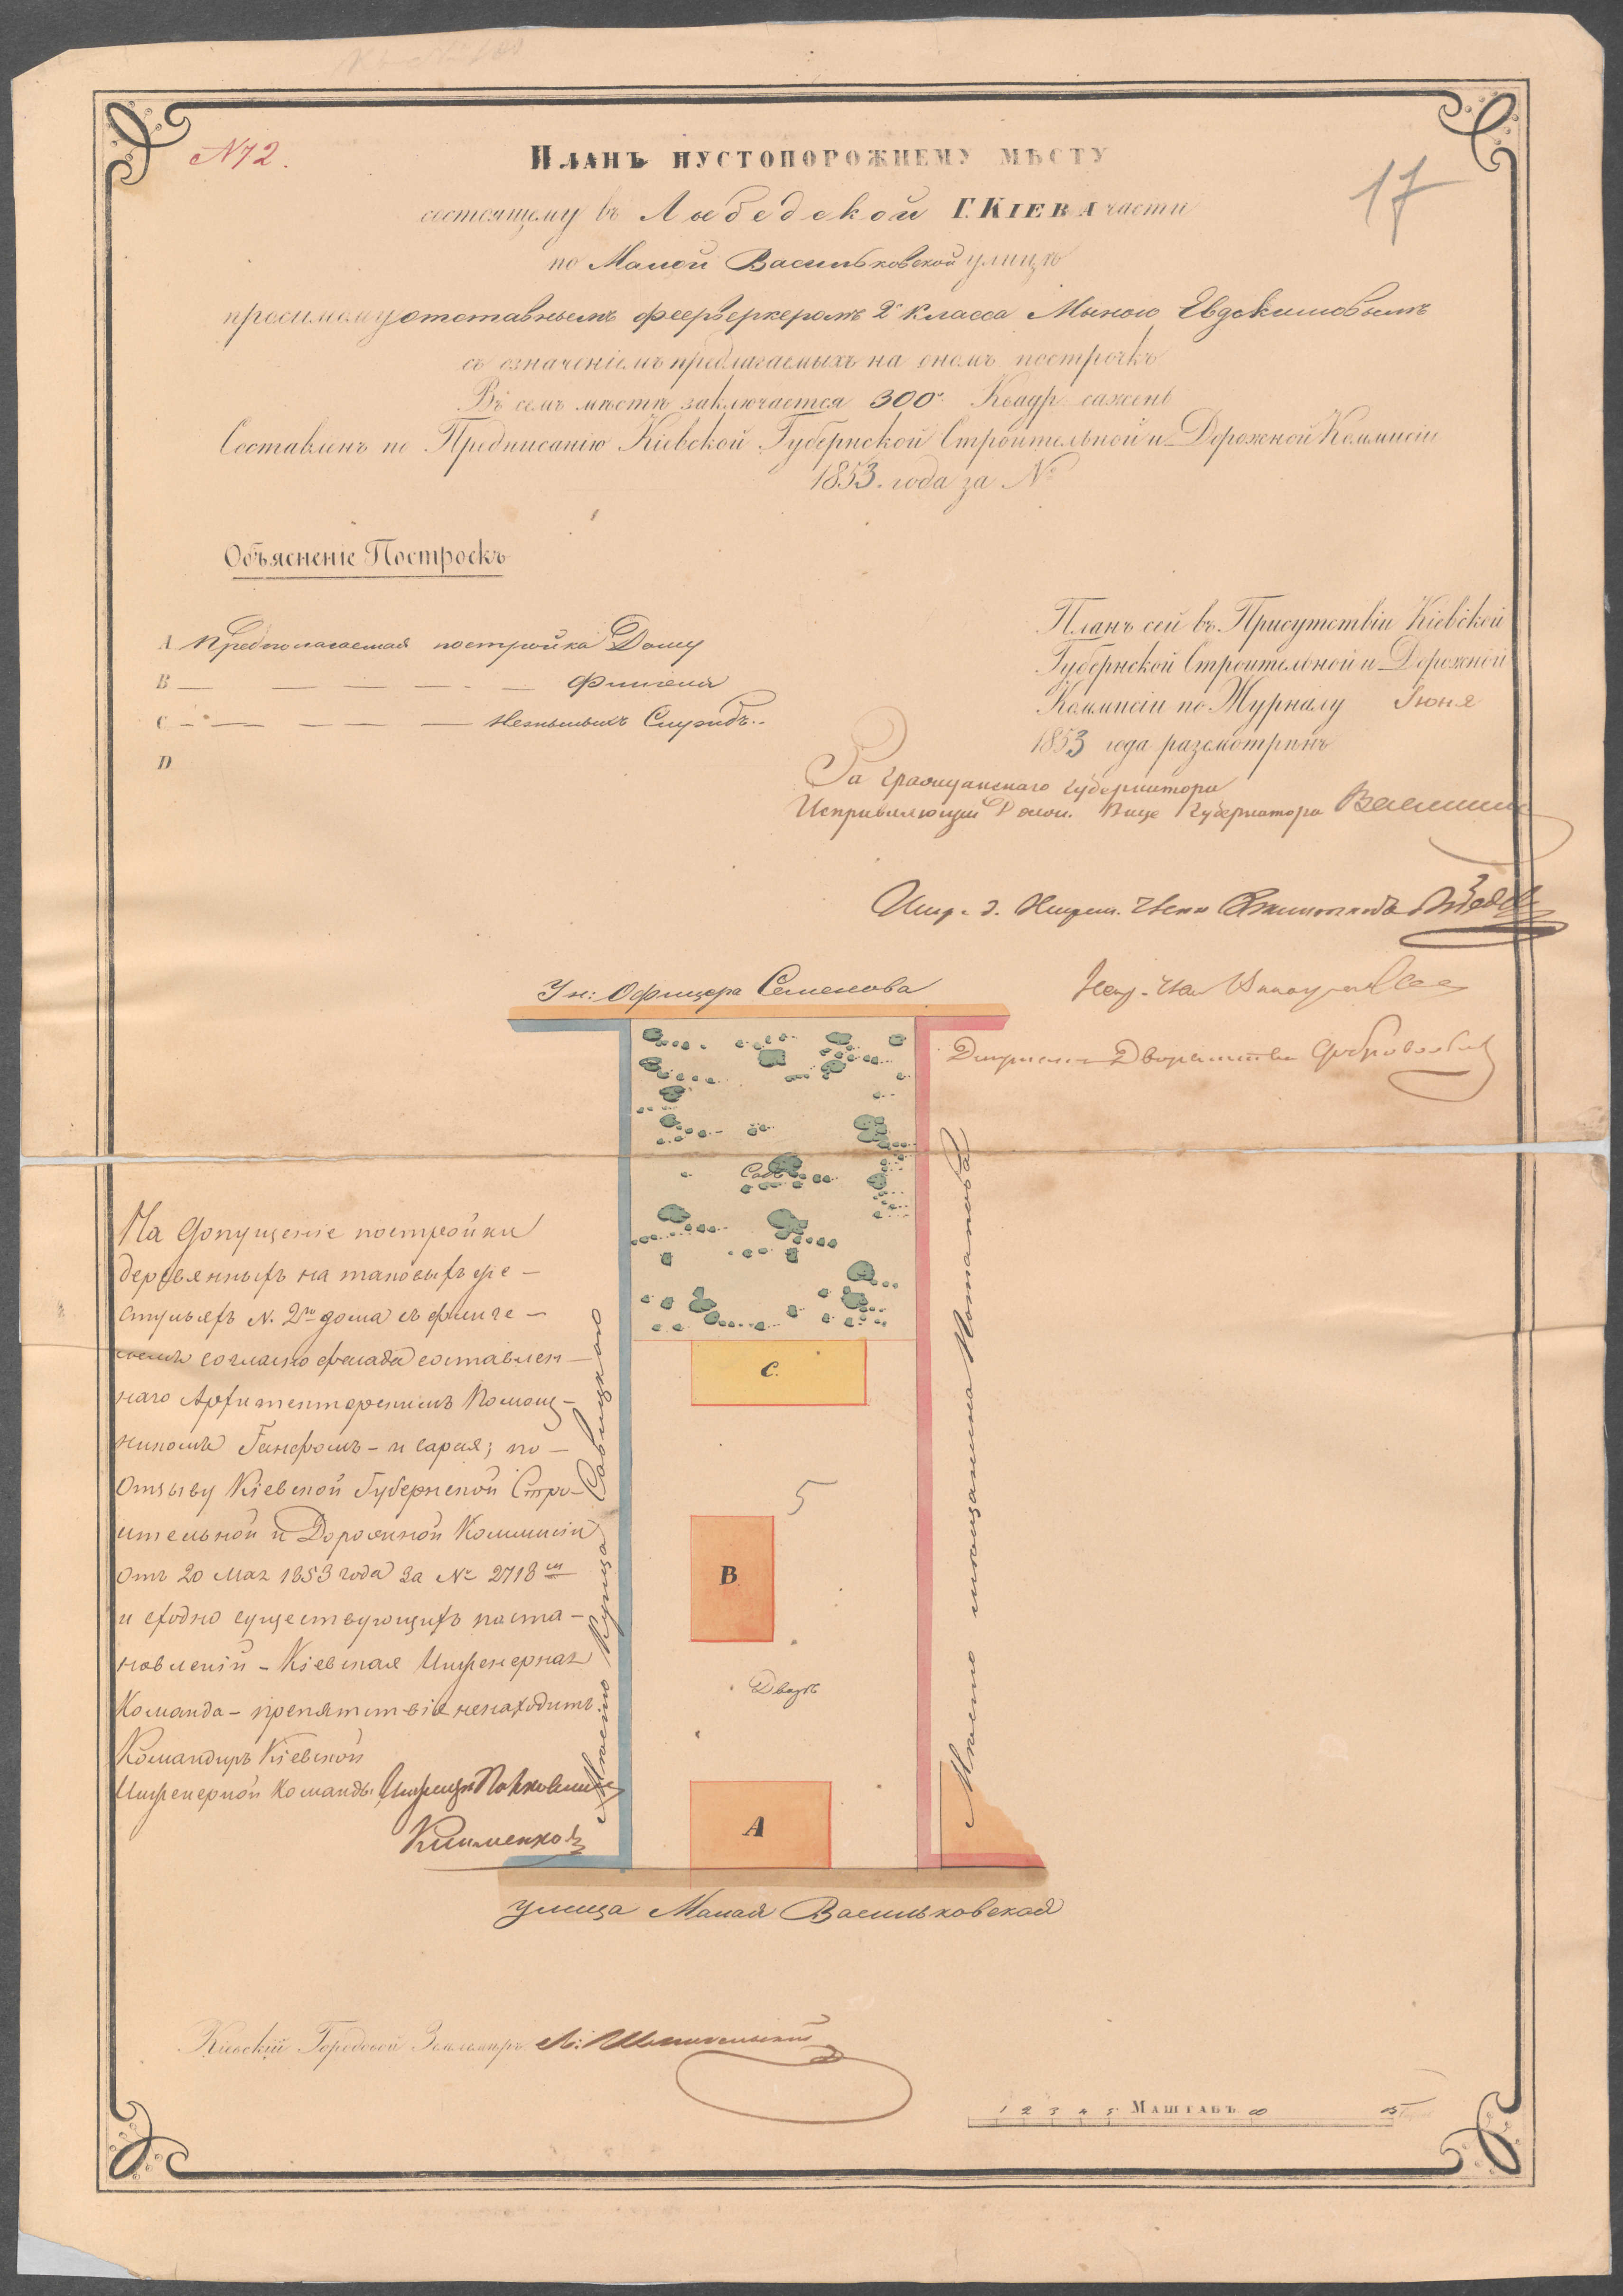 N 72.
17
Планъ пустопорожнему мѣсту
состоящему въ Лыбедской Г. КІЕВА части
по Малой Васильковской улицѣ
просимому отставнымъ феерверкеромъ 2 класса Мыною Евдокимовымъ
съ означеніемъ предлагаемыхъ на ономъ построекъ
Въ семъ мѣстѣ заключается 300 Квадр. сажень
Составленъ по Предписанію Кіевской Губернской Строительной и Дорожной Коммисіи
1853. года за №
Объясненіе Построекъ
А Предполагаемая постройка Дому
В — — — — — — Флигеля
С — — — — — Нежилыхъ Службъ.
D
Планъ сей въ Присутствіи Кіевской
Губернской Строительной и Дорожной
Коммисіи по Журналу Іюня
1853 года разсмотрѣнъ
За Гражданскаго Губернатора
Исправляющій Долж. Вице Губернатора
Ун: Офицера Семенова
Садъ
С.
5
В
Дворъ
А
Мѣсто Купца Савицкаго
Мѣсто мѣщанина Потапова
На допущеніе постройки
деревянныхъ на таковыхъ же
стульяхъ N. 2го дома съ флиге–
лемъ согласно фасада составлен–
наго Архитекторскимъ Помощ–
никомъ – и сарая; по
Отзыву Кіевской Губернской Стро–
ительной и Дорожной Коммисіи
отъ 20 Мая 1853 года за № 2718
и сходно существующихъ поста–
новленій – Кіевская Инженерная
Команда – препятствія ненаходитъ.
Командиръ Кіевской
Инженерной Команды Инженеръ Полковникъ
Клименко
улица Малая Васильковская
Кіевскій Городовой Землемѣръ
1 2 3 4 5 Маштабъ 15